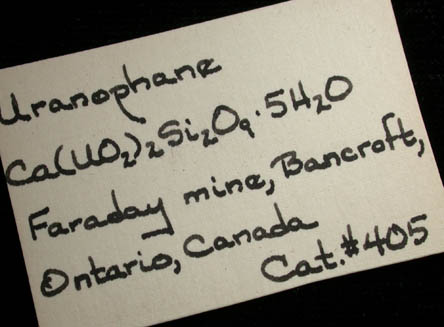 Uranophane
Ca(UO₂)₂Si₂O₉·5H₂O
Faraday mine, Bancroft,
Ontario, Canada
Cat.#405